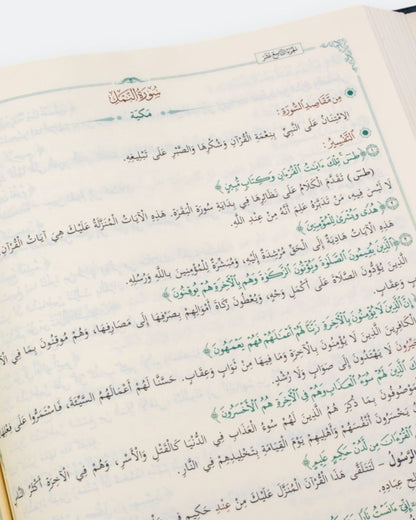 الجزء التاسع عشر
سُورَةُ النَّمْلِ
مَكِّيَّة
مِن مَّقَاصِدِ السُّورَةِ :
الِامْتِنَانُ عَلَى النَّبِيِّ بِنِعْمَةِ الْقُرْآنِ وَشُكْرِهَا وَالصَّبْرِ عَلَى تَبْلِيغِهِ.
التَّفْسِيرُ :
﴿طسٓ تِلْكَ ءَايَٰتُ ٱلْقُرْءَانِ وَكِتَابٍ مُّبِينٍ﴾
(طسٓ) تَقَدَّمَ الْكَلَامُ عَلَى نَظَائِرِهَا فِي بِدَايَةِ سُورَةِ الْبَقَرَةِ. هَذِهِ الْآيَاتُ الْمُنَزَّلَةُ عَلَيْكَ هِيَ آيَاتُ الْقُرْآنِ
لَا لَبْسَ فِيهِ، مَنْ تَدَبَّرَهُ عَلِمَ أَنَّهُ مِنْ عِنْدِ اللَّهِ.
﴿هُدًى وَبُشْرَىٰ لِلْمُؤْمِنِينَ﴾
هَذِهِ الْآيَاتُ هَادِيَةٌ إِلَى الْحَقِّ مُرْشِدَةٌ إِلَيْهِ، وَمُبَشِّرَةٌ لِلْمُؤْمِنِينَ بِاللَّهِ وَرُسُلِهِ.
﴿ٱلَّذِينَ يُقِيمُونَ ٱلصَّلَوٰةَ وَيُؤْتُونَ ٱلزَّكَوٰةَ وَهُم بِٱلْءَاخِرَةِ هُمْ يُوقِنُونَ﴾
الَّذِينَ يُؤَدُّونَ الصَّلَاةَ عَلَى أَكْمَلِ وَجْهٍ، وَيُعْطُونَ زَكَاةَ أَمْوَالِهِمْ بِصَرْفِهَا إِلَى مَصَارِفِهَا، وَهُمْ مُوقِنُونَ بِمَا فِي
وَعِقَابٍ.
إِنَّ ٱلَّذِينَ لَا يُؤْمِنُونَ بِٱلْءَاخِرَةِ زَيَّنَّا لَهُمْ أَعْمَٰلَهُمْ فَهُمْ يَعْمَهُونَ﴾
الْكَافِرِينَ الَّذِينَ لَا يُؤْمِنُونَ بِالْآخِرَةِ وَمَا فِيهَا مِنْ ثَوَابٍ وَعِقَابٍ. حَسَّنَّا لَهُمْ أَعْمَالَهُمُ السَّيِّئَةَ، فَاسْتَمَرُّوا عَلَى
لَا يَهْتَدُونَ إِلَى صَوَابٍ وَلَا رُشْدٍ.
ٱلَّذِينَ لَهُمْ سُوٓءُ ٱلْعَذَابِ وَهُمْ فِي ٱلْءَاخِرَةِ هُمُ ٱلْأَخْسَرُونَ﴾
بِمَا ذُكِرَ هُمُ الَّذِينَ لَهُمْ سُوءُ الْعَذَابِ فِي الدُّنْيَا كَالْقَتْلِ وَالْأَسْرِ، وَهُمْ فِي الْآخِرَةِ أَكْثَرُ
يَخْسَرُونَ أَنْفُسَهُمْ وَأَهْلِيهِمْ يَوْمَ الْقِيَامَةِ بِتَخْلِيدِهِمْ فِي النَّارِ.
ٱلْقُرْءَانَ مِن لَّدُنْ حَكِيمٍ عَلِيمٍ﴾
الرَّسُولُ - لَتَتَلَقَّى هَذَا الْقُرْآنَ الْمُنَزَّلَ عَلَيْكَ مِنْ عِنْدِ حَكِيمٍ فِي
عِبَادِهِ.